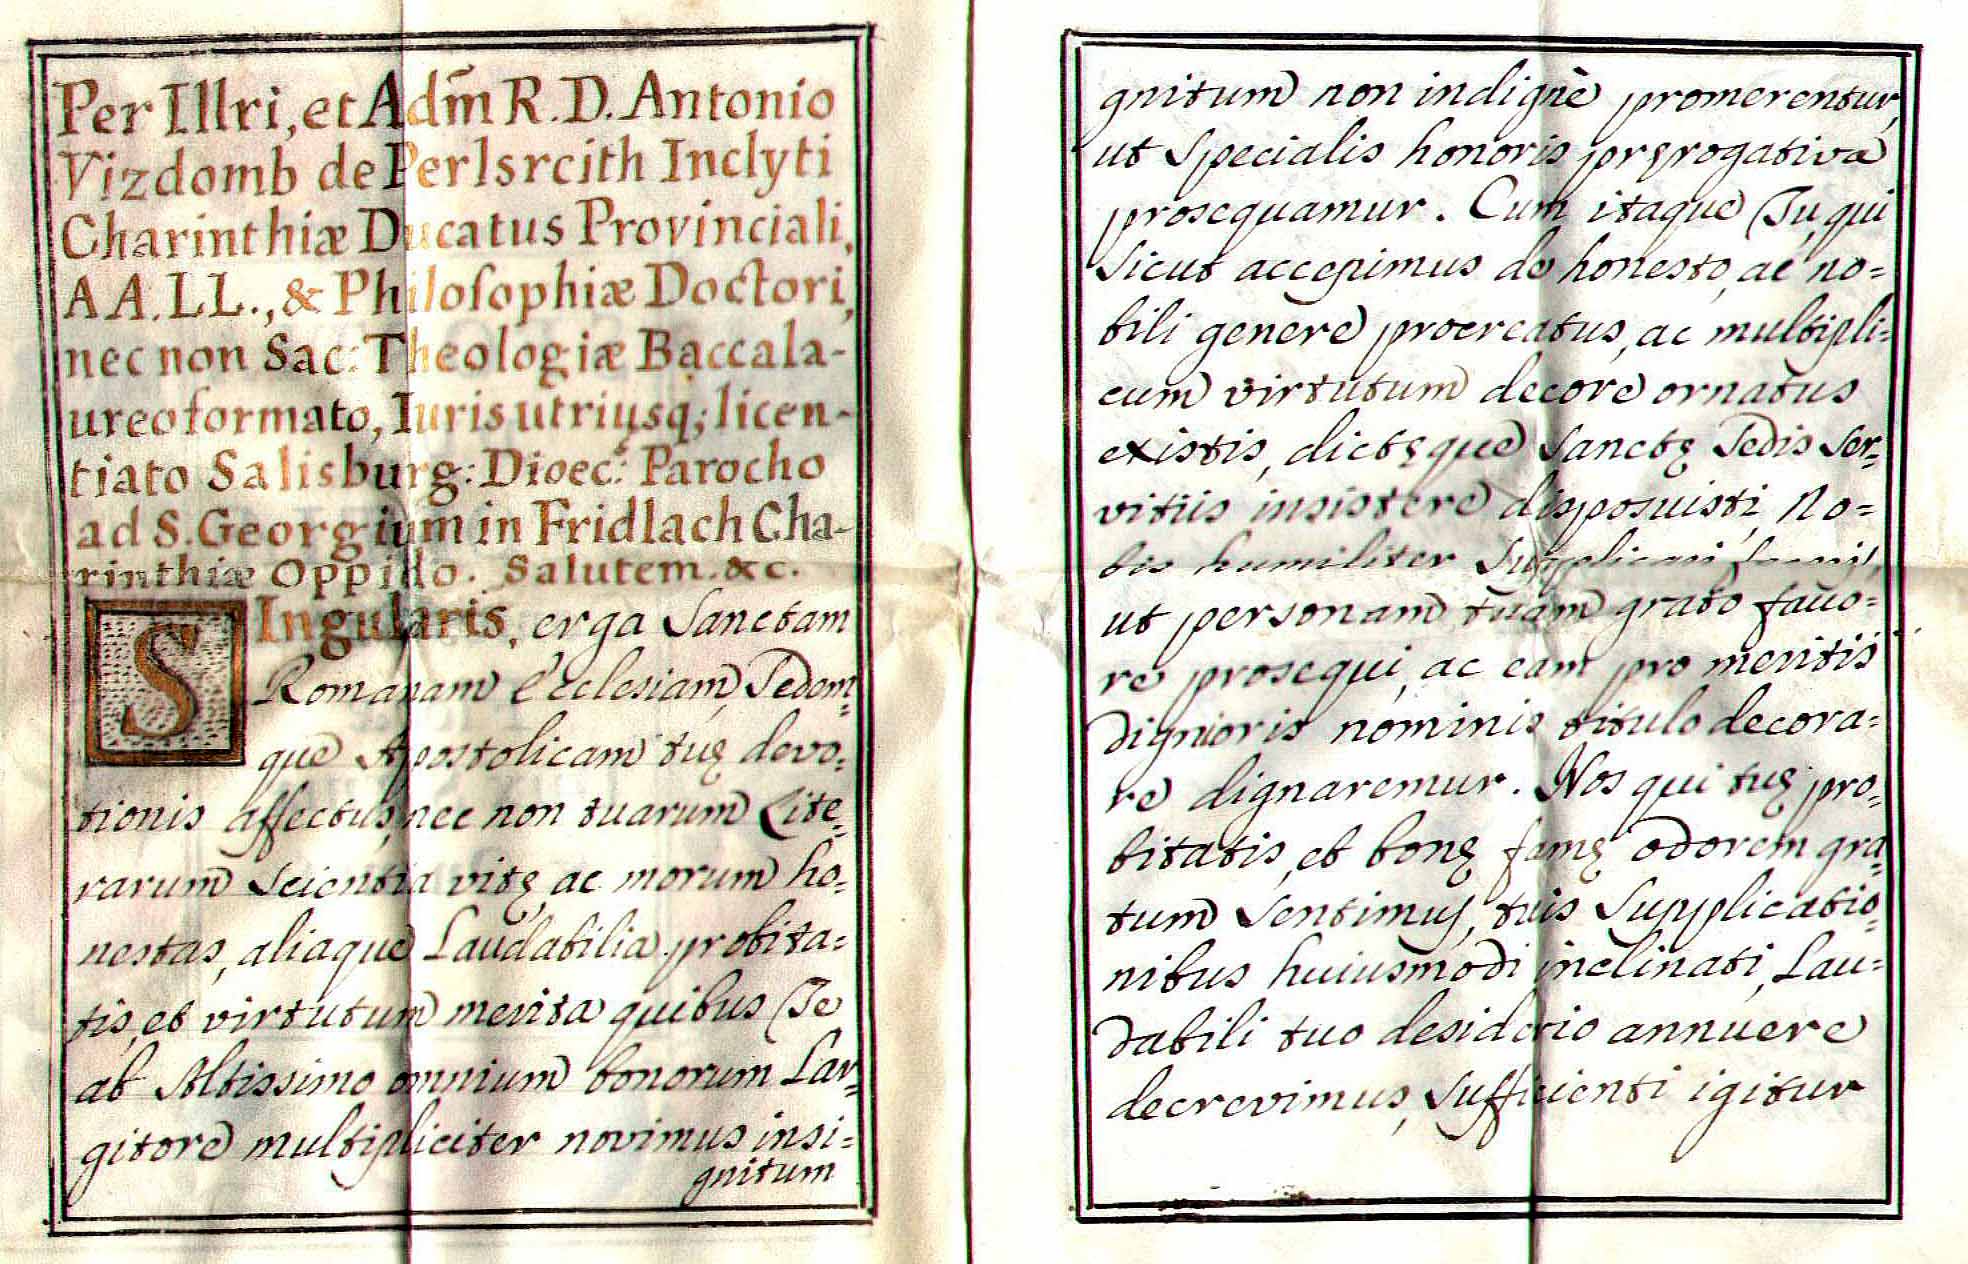 Per Illri, et Adm̃ R. D. Antonio
Vizdomb de Perlsrcith Inclyti
Charinthiæ Ducatus Provinciali,
A A. LL., & Philosophiæ Doctori,
nec non Sac: Theologiæ Baccala-
ureo formato, Iuris utriusq; licen-
tiato Salisburg: Dioec: Parocho
ad S. Georgium in Fridlach Cha-
rinthiæ Oppido. Salutem. &c.
SIngularis, erga Sanctam
Romanam Ecclesiam, Sedem=
que Apostolicam tuę devo=
tionis affectus, nec non tuarum Lite=
rarum Scientia vitę, ac morum ho=
nestas, aliaque Laudabilia probita=
tis, et virtutum merita quibus Te
ab Altissimo omnium bonorum Lar=
gitore multipliciter novimus insi=
gnitum
gnitum non indignè promerentur,
ut Specialis honoris pręrogativa
prosequamur. Cum itaque Tu, qui
Sicut accepimus de honesto, ac no=
bili genere procreatus, ac multipli=
cum virtutum decore ornatus
existis, dictęque Sanctę Sedis Ser=
vitiis insistere disposuisti, No=
bis humiliter Supplicari
ut personam tuam grato favo=
re prosequi, ac eam pro meritis
dignioris nominis titulo decora=
re dignaremur. Nos qui tuę pro=
bitatis, et bonę famę odorem gra=
tum Sentimus, tuis Supplicatio=
nibus huiusmodi inclinati, Lau=
dabili tuo desiderio annuere
decrevimus, Sufficienti igitur